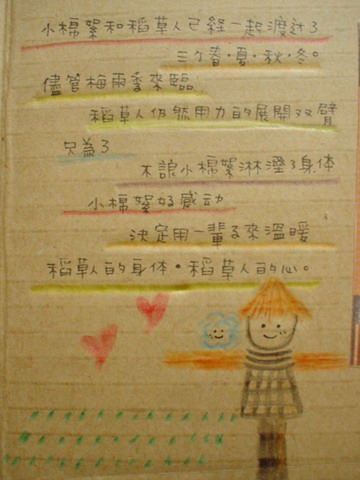 小棉絮和稻草人已經一起渡过了
三个春·夏·秋·冬。
儘管梅雨季來臨
稻草人仍然用力的展開双臂
只為了
不讓小棉絮淋溼了身体
小棉絮好感动
決定用一輩子來溫暖
稻草人的身体。稻草人的心。